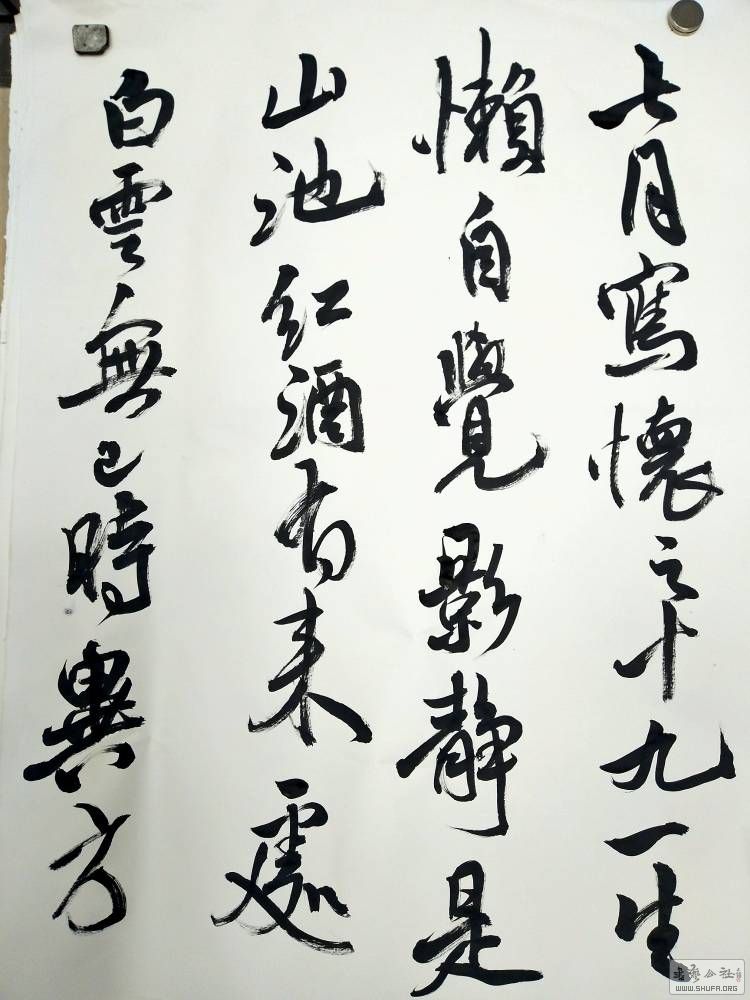 七月寫懷之十九一生
懶自覺影静是
山池紅酒有来處
白雲無已時異方
WWW.SHUFA.ORG